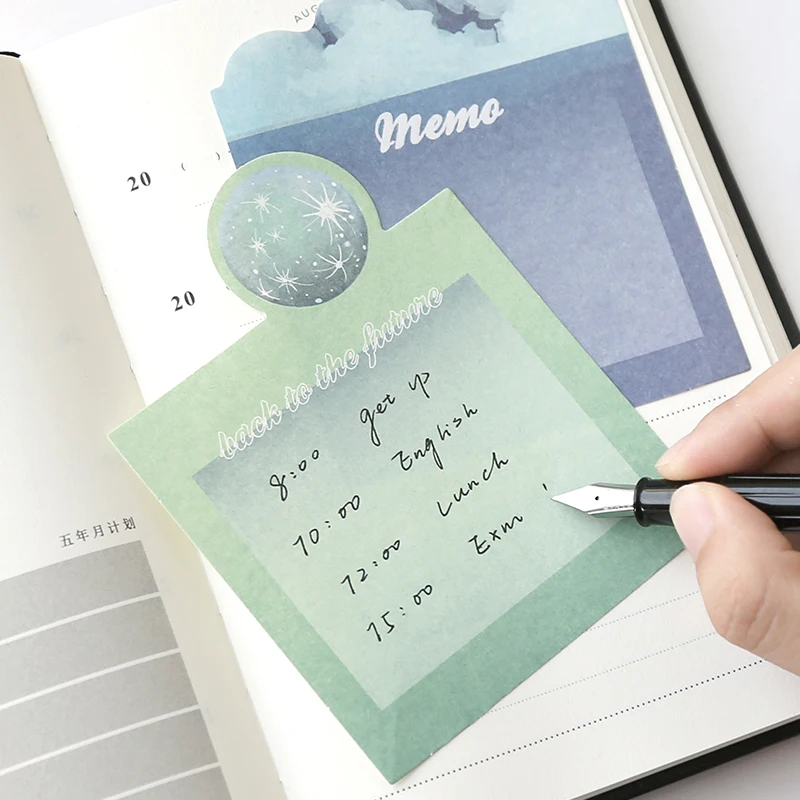 AUG
Memo
20 ( )
20
back to the future
8:00 get up
10:00 English
12:00 Lunch
15:00 Exm
五年月计划